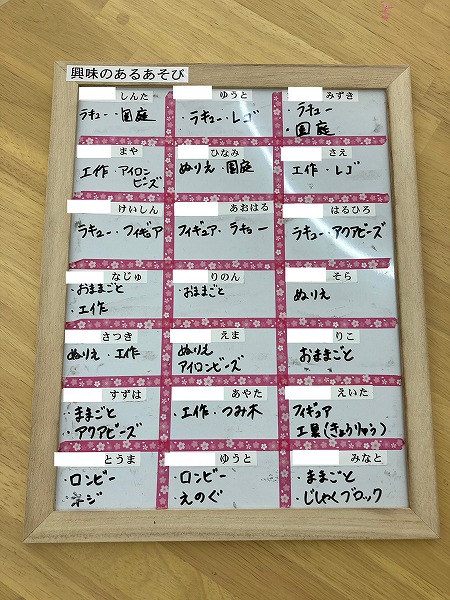 興味のあるあそび
しんた
ラキュー・園庭
ゆうと
・ラキュー・レゴ
みずき
・ラキュー
・園庭
まや
工作・アイロン
ビーズ
ひなみ
ぬりえ・園庭
さえ
工作・レゴ
けいしん
ラキュー・フィギュア
あおはる
フィギュア・ラキュー
はるひろ
ラキュー・アクアビーズ
なじゅ
・おままごと
・工作
りのん
・おままごと
そら
ぬりえ
さつき
ぬりえ・工作
えま
ぬりえ
アイロンビーズ
りこ
おままごと
すずは
・ままごと
・アクアビーズ
あやた
・工作・つみ木
えいた
フィギュア
工具(きょうりゅう)
とうま
・ロンビー
・ネジ
ゆうと
・ロンビー
・えのぐ
みなと
・ままごと
・じしゃくブロック